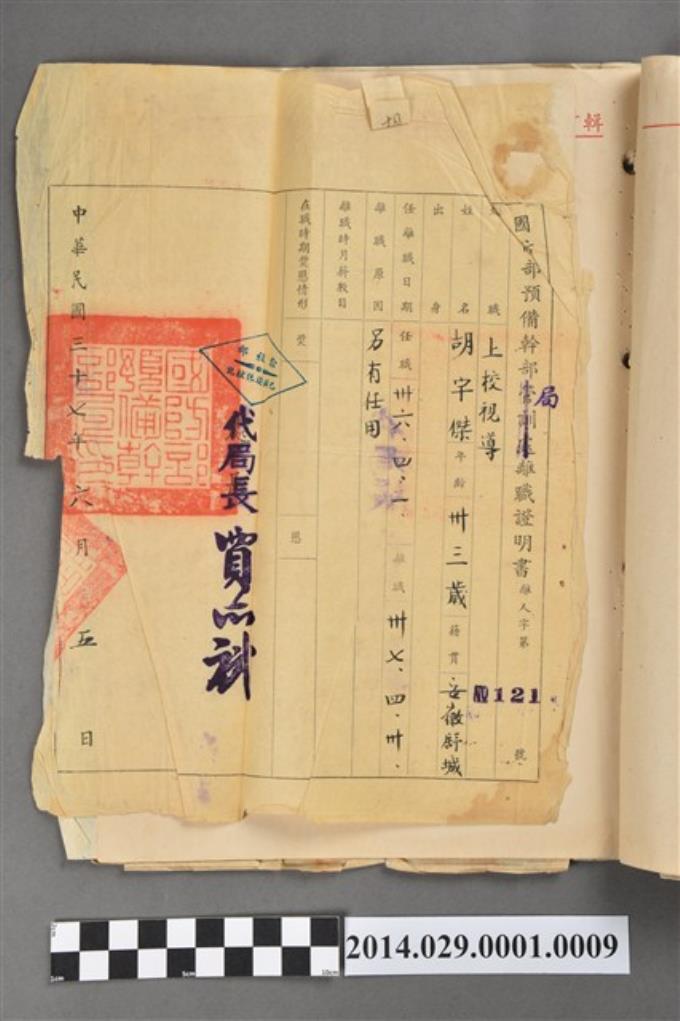 輯
國防部預備幹部管訓處離職證明書 離人字第 121 號
局
級職 上校視導
姓名 胡宇傑 年齡 卅三歲 籍貫 安徽舒城
出身
任離職日期 任職 卅六、四、一、 離職 卅七、四、卅、
離職原因 另有任用
離職時月薪數目
在職時期獎懲情形 獎 懲
代局長 賈亦斌
中華民國三十七年六月 五日
2014.029.0001.0009